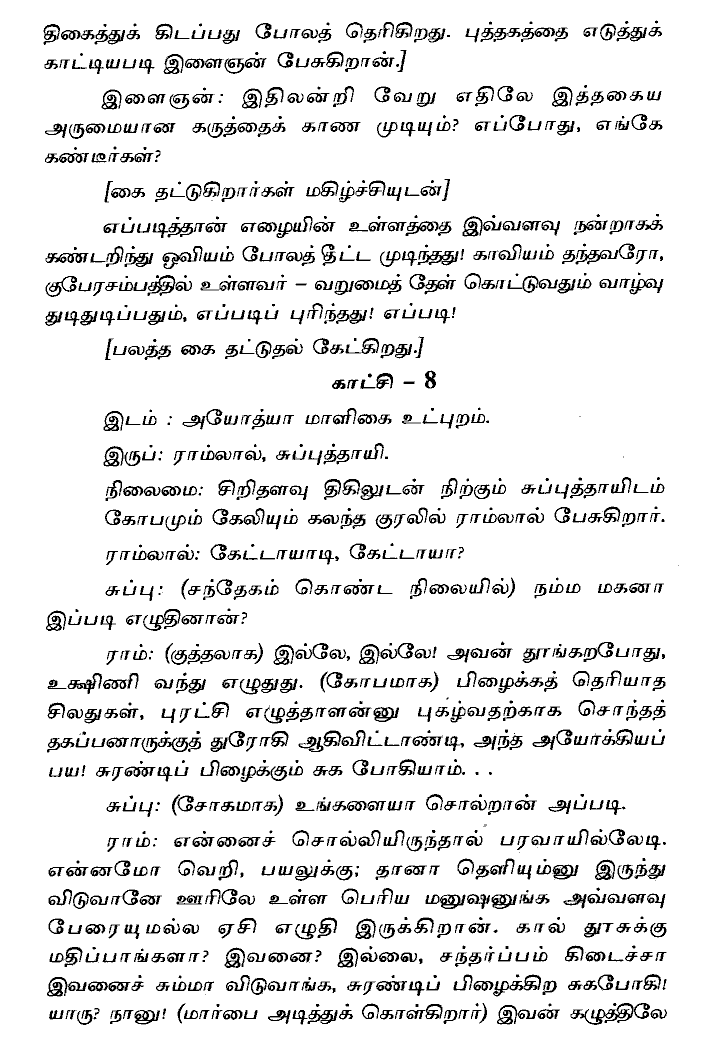 திகைத்துக் கிடப்பது போலத் தெரிகிறது. புத்தகத்தை எடுத்துக்
காட்டியபடி இளைஞன் பேசுகிறான்.]
இளைஞன்: இதிலன்றி வேறு எதிலே இத்தகைய
அருமையான கருத்தைக் காண முடியும்? எப்போது, எங்கே
கண்டீர்கள்?
[கை தட்டுகிறார்கள் மகிழ்ச்சியுடன்]
எப்படித்தான் எழையின் உள்ளத்தை இவ்வளவு நன்றாகக்
கண்டறிந்து ஓவியம் போலத் தீட்ட முடிந்தது! காவியம் தந்தவரோ,
குபேரசம்பத்தில் உள்ளவர் – வறுமைத் தேள் கொட்டுவதும் வாழ்வு
துடிதுடிப்பதும், எப்படிப் புரிந்தது! எப்படி!
[பலத்த கை தட்டுதல் கேட்கிறது.]
காட்சி – 8
இடம் : அயோத்யா மாளிகை உட்புறம்.
இருப்: ராம்லால், சுப்புத்தாயி.
நிலைமை: சிறிதளவு திகிலுடன் நிற்கும் சுப்புத்தாயிடம்
கோபமும் கேலியும் கலந்த குரலில் ராம்லால் பேசுகிறார்.
ராம்லால்: கேட்டாயாடி, கேட்டாயா?
சுப்பு: (சந்தேகம் கொண்ட நிலையில்) நம்ம மகனா
இப்படி எழுதினான்?
ராம்: (குத்தலாக) இல்லே, இல்லே! அவன் தூங்கறபோது,
உக்ஷிணி வந்து எழுதுது. (கோபமாக) பிழைக்கத் தெரியாத
சிலதுகள், புரட்சி எழுத்தாளன்னு புகழ்வதற்காக சொந்தத்
தகப்பனாருக்குத் துரோகி ஆகிவிட்டாண்டி, அந்த அயோக்கியப்
பய! சுரண்டிப் பிழைக்கும் சுக போகியாம். . .
சுப்பு: (சோகமாக) உங்களையா சொல்றான் அப்படி.
ராம்: என்னைச் சொல்லியிருந்தால் பரவாயில்லேடி.
என்னமோ வெறி, பயலுக்கு; தானா தெளியும்னு இருந்து
விடுவானே ஊரிலே உள்ள பெரிய மனுஷனுங்க அவ்வளவு
பேரையுமல்ல ஏசி எழுதி இருக்கிறான். கால் தூசுக்கு
மதிப்பாங்களா? இவனை? இல்லை, சந்தர்ப்பம் கிடைச்சா
இவனைச் சும்மா விடுவாங்க, சுரண்டிப் பிழைக்கிற சுகபோகி!
யாரு? நானு! (மார்பை அடித்துக் கொள்கிறார்) இவன் கழுத்திலே